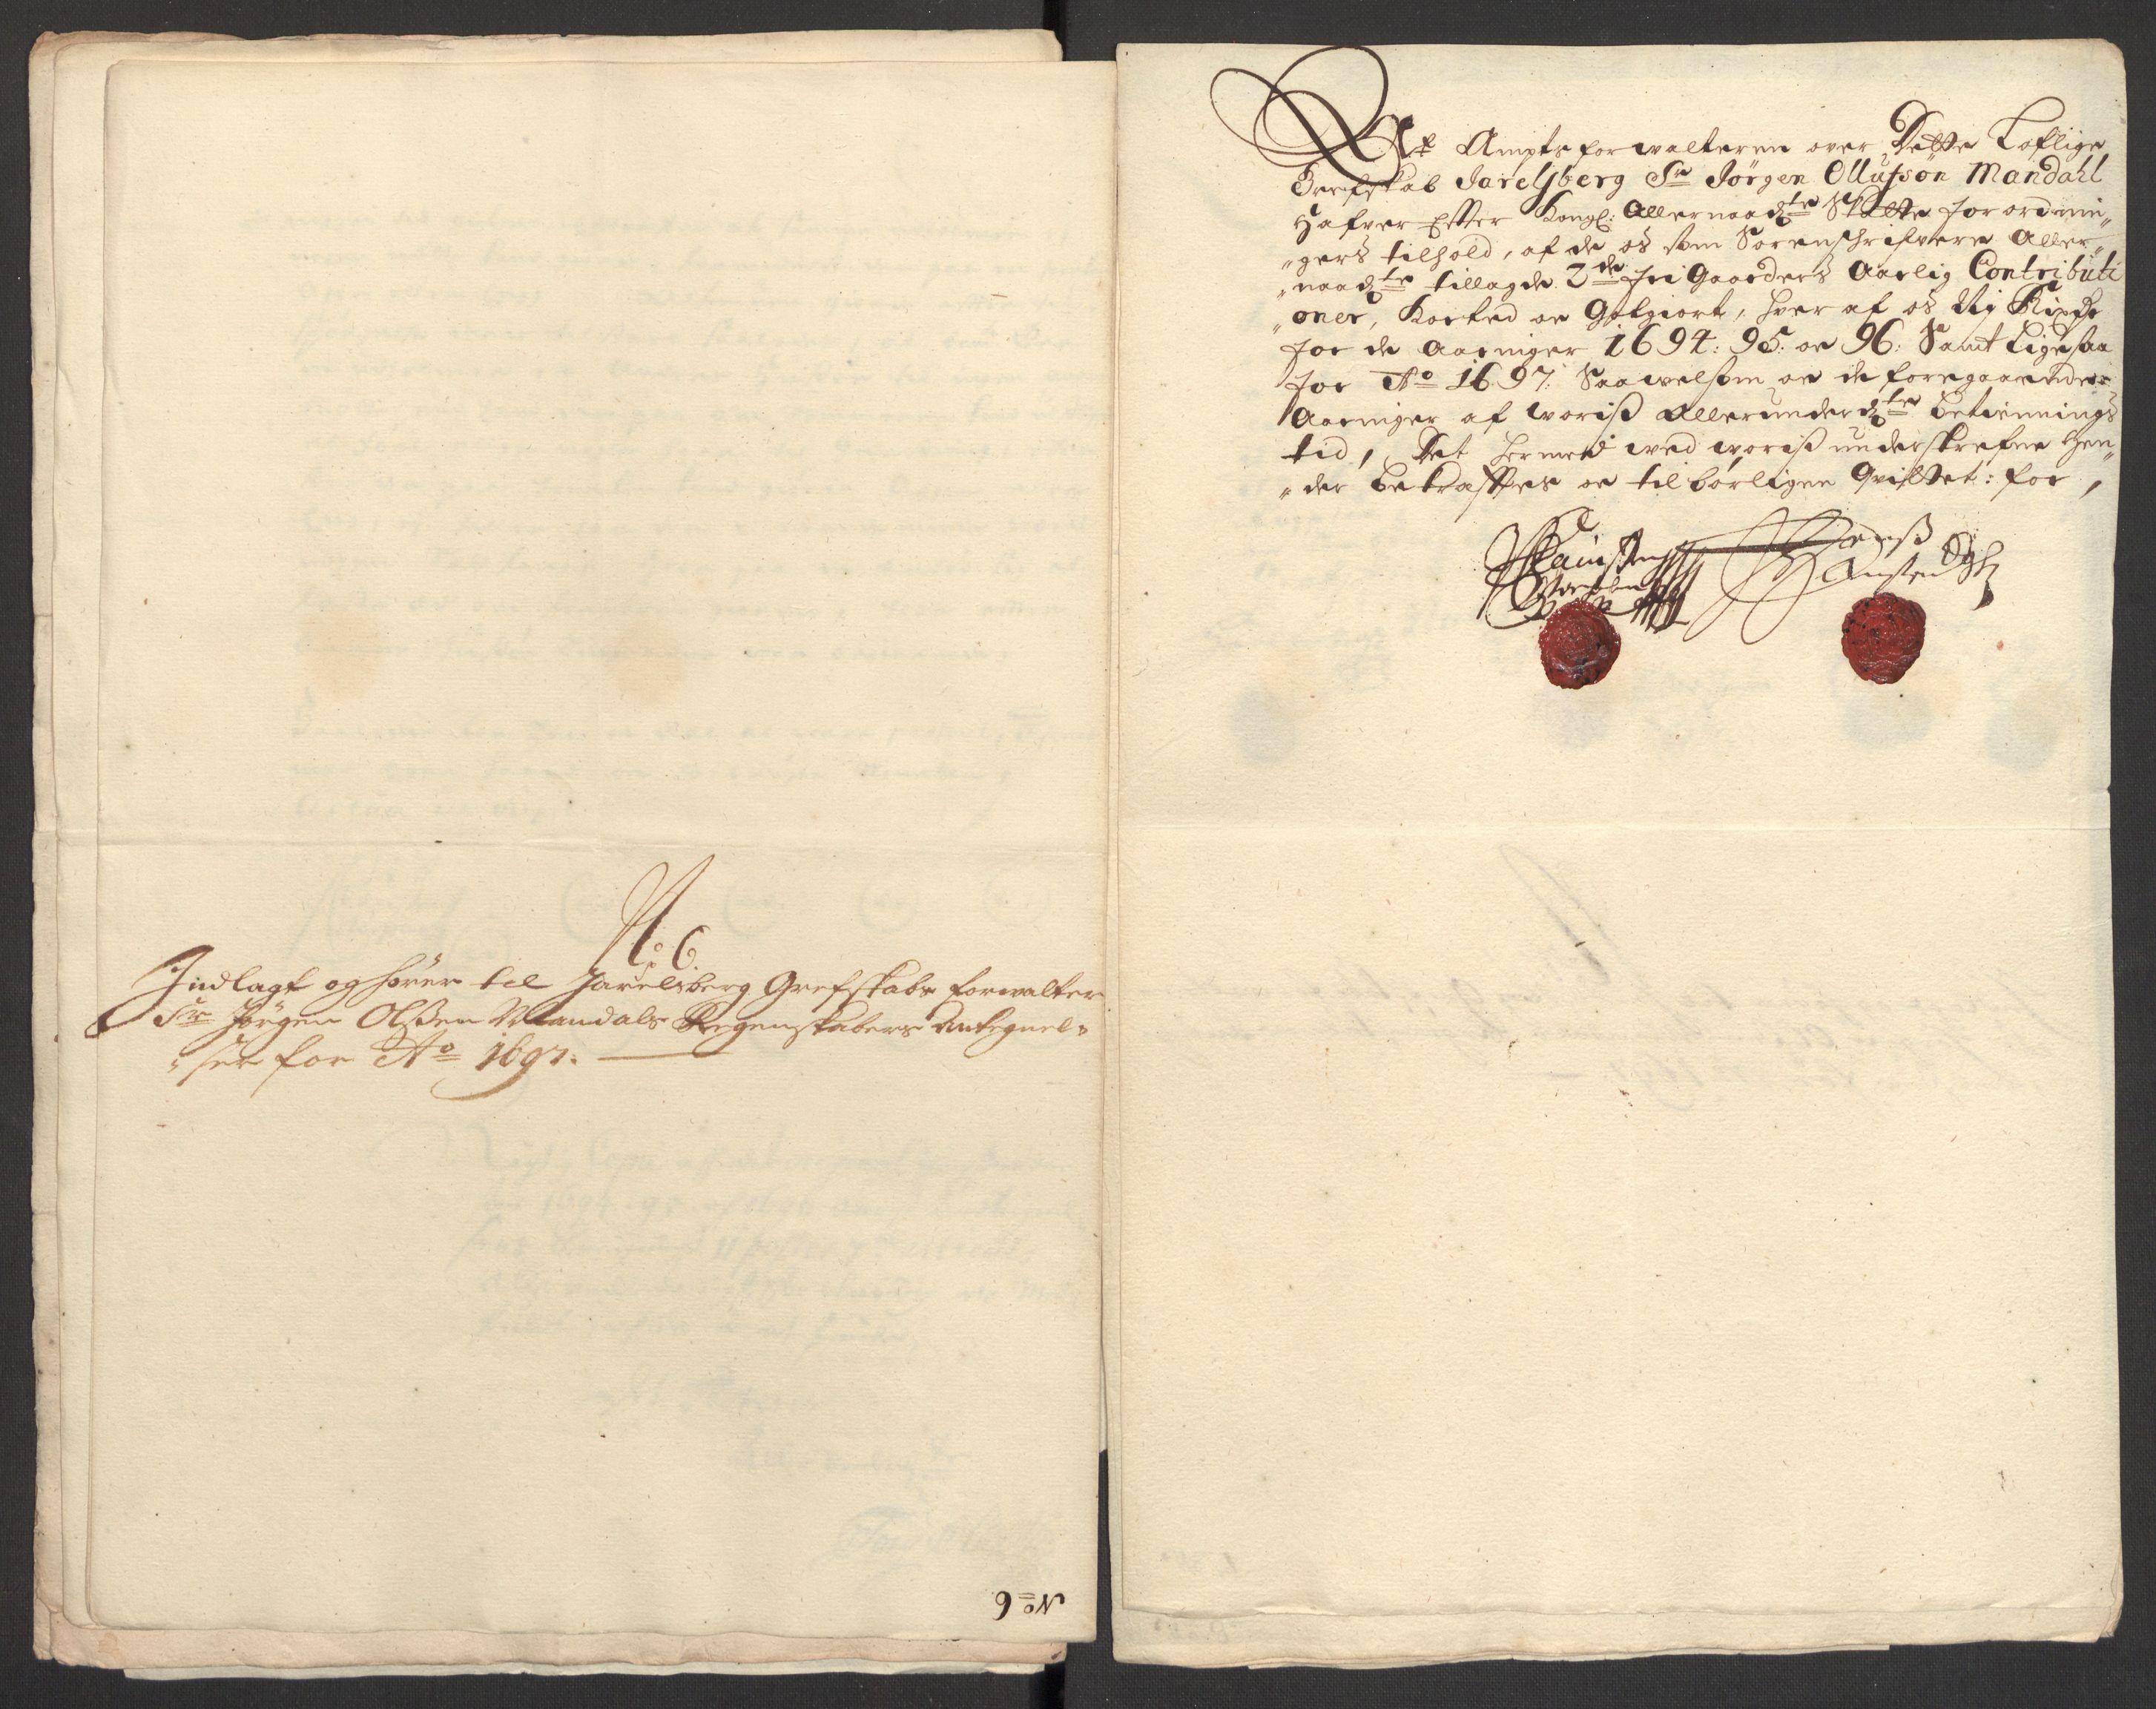 No. 6
Indlagt og hører til Jarelsberg Grefskabs forwalter
Sr Jörgen Olßen Mandals Regenskabers Antegnel-
"ser for Ao 1697.
No 6
At Amptsforwalteren over Dette Loflige
Grefskab Jarelsberg Sr Jörgen Ollufsön Mandahl
Hafver Efter Kongl: Allernaadste Skatte forordnin"
"gers tilhold, af de os som Sorenschrifvere Aller"
"naadste tillagde 2de fri Gaarders Aarlig Contributi
"oner, Korted oc Gotgiort, hver af os
for de Aaringer 1694: 95: oc 96: Samt Ligesaa
for Ao 1697: Saavelsom oc de foregaaende
Aaringer af woriß allerunderdste betiennings
tid, Det hermed wed woriß underskrefne Hen"
"der Bekræfftes oc tilbørligen Qvitteret: for,